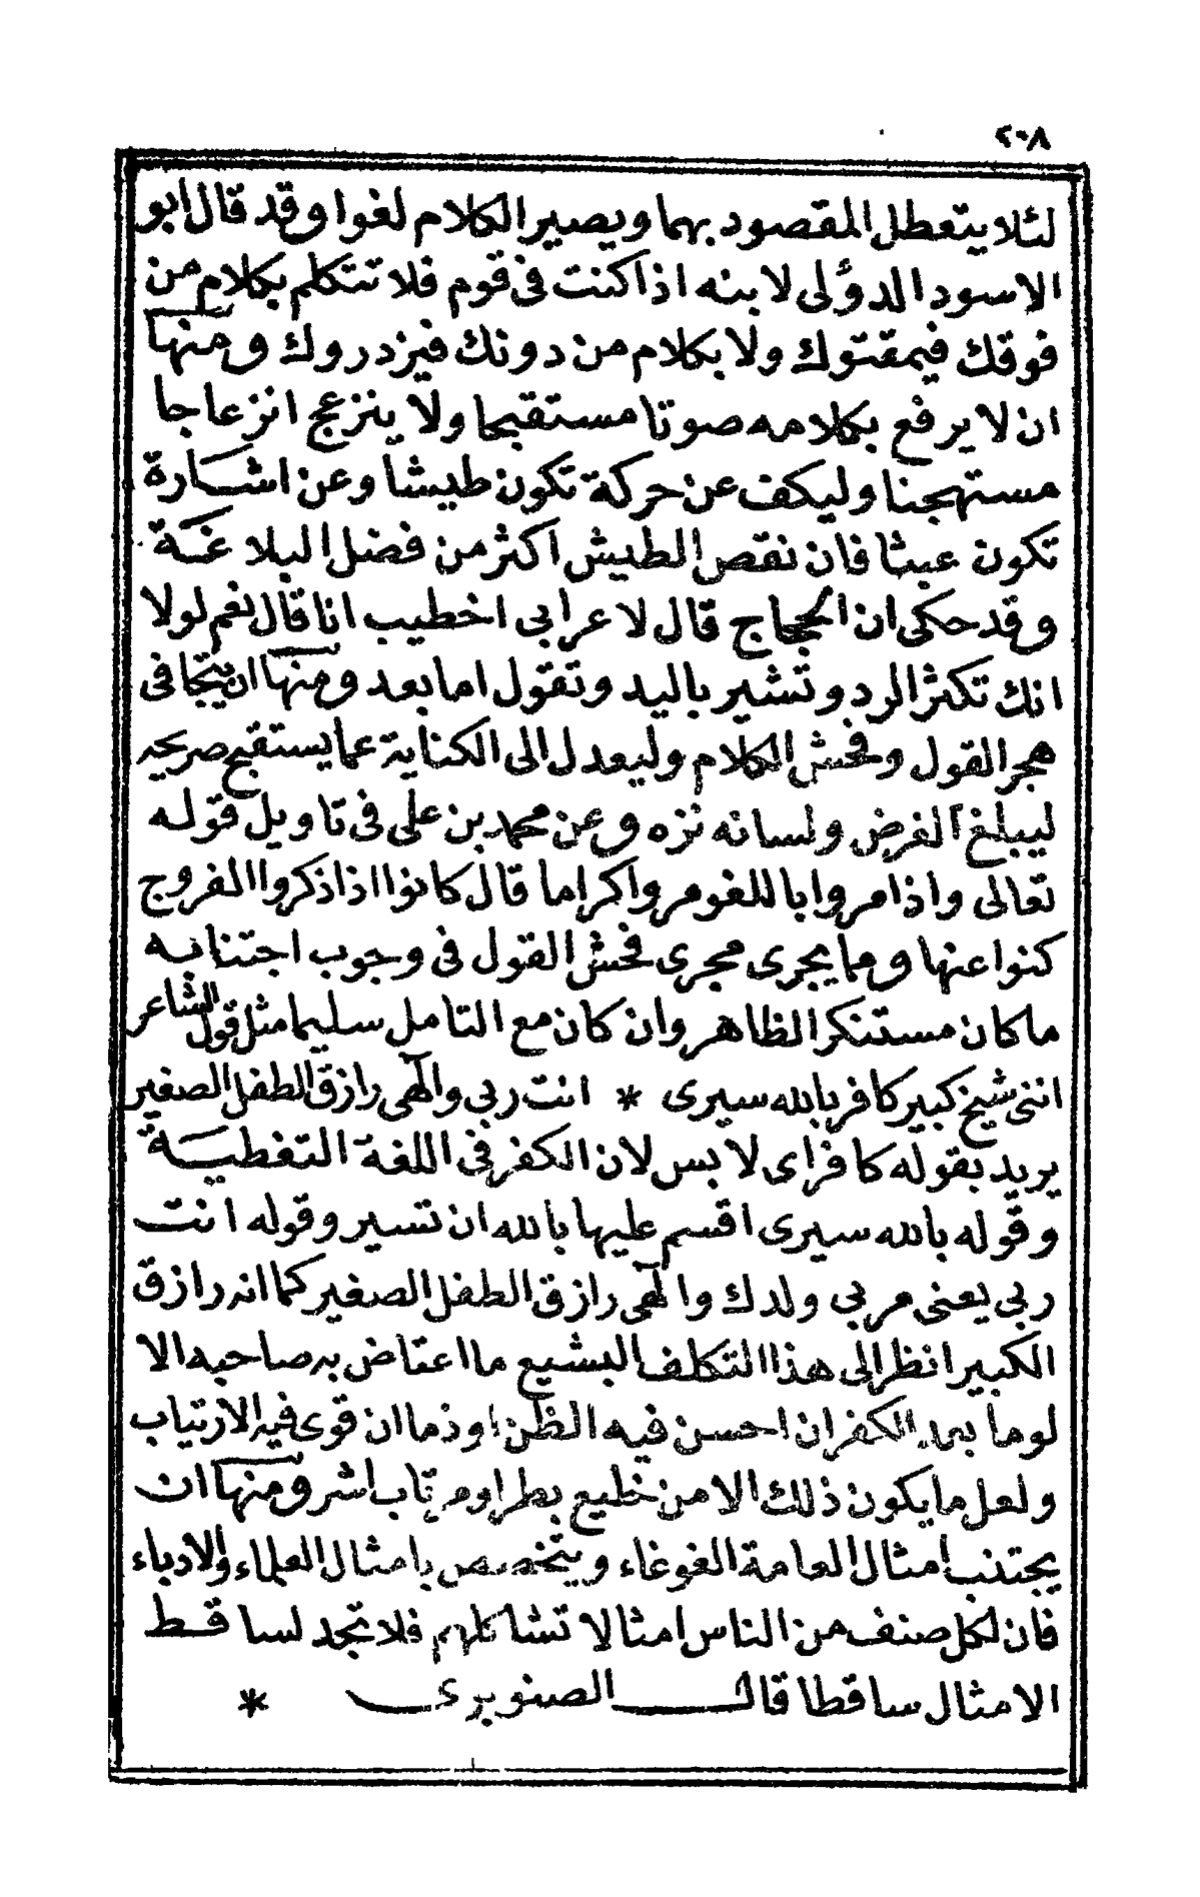 ٢٠٨
لئلا يتعطل المقصود بهما ويصير الكلام لغوا وقد قال ابو
الاسود الدؤلى لابنه اذا كنت فى قوم فلا تتكلم بكلام من
فوقك فيمقتوك ولا بكلام من دونك فيزدروك ومنها
ان لا يرفع بكلامه صوتا مستقبحا ولا ينزعج انزعاجا
مستهجنا وليكف عن حركة تكون طيشا وعن اشارة
تكون عبثا فان نقص الطيش اكثر من فضل البلاغة
وقد حكى ان الحجاج قال لاعرابى اخطيب انا قال نعم لولا
انك تكثر الرد وتشير باليد وتقول اما بعد ومنها ان يتجافى
هجر القول وفحش الكلام وليعدل الى الكناية عما يستقبح صريحه
ليبلغ الغرض ولسانه نزه وعن محمد بن على فى تاويل قوله
تعالى واذا مروا باللغو مروا كراما قال كانوا اذا ذكروا الفروج
كنوا عنها ومما يجرى مجرى فحش القول فى وجوب اجتنابه
ما كان مستنكر الظاهر وان كان مع التامل سليما مثل قول الشاعر
اننى شيخ كبير كافر بالله سيرى * انت ربى والهى رازق الطفل الصغير
يريد بقوله كافر اى لابس لان الكفر فى اللغة التغطية
وقوله بالله سيرى اقسم عليها بالله ان تسير وقوله انت
ربى يعنى مربى ولدك والهى رازق الطفل الصغير كما انه رازق
الكبير انظر الى هذا التكلف البشيع ما اعتاض به صاحبه الا
لوما بعد الكفران احسن فيه الظن اوذما ان قوى فيه الارتياب
ولعل ما يكون ذلك الا من خليع بطر اومرتاب اشر ومنها ان
يجتنب امثال العامة الغوغاء ويتخصص بامثال العلماء والادباء
فان لكل صنف من الناس امثالا تشاكلهم فلا تجد لساقط
الامثال ساقطا قال الصنوبرى *